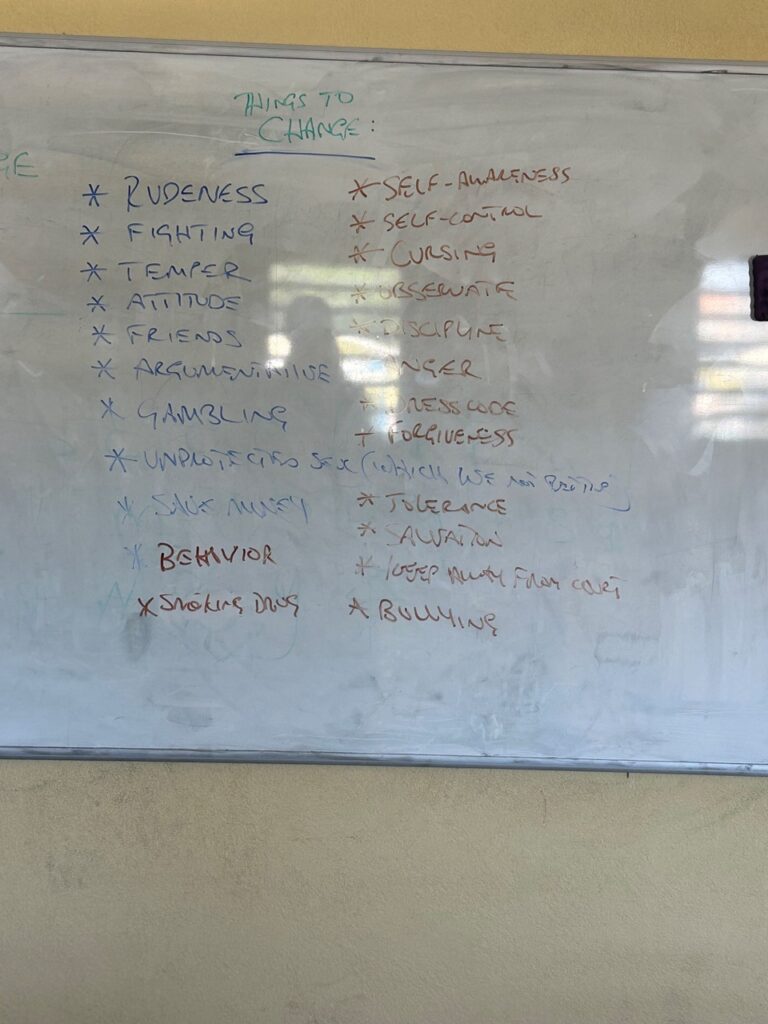 THINGS TO
CHANGE:
GE
* RUDENESS
* FIGHTING
* TEMPER
* ATTITUDE
* FRIENDS
* ARGUMENTATIVE
* GAMBLING
* UNPROTECTED SEX (WHICH WE NOT
* SAVE MONEY
* BEHAVIOR
* SMOKING DRUG
* SELF-AWARENESS
* SELF-CONTROL
* CURSING
* OBSERVATE
* DISCIPLINE
ANGER
* DRESS CODE
* FORGIVENESS
* TOLERANCE
* SALVATION
* KEEP AWAY FROM COURT
* BULLYING